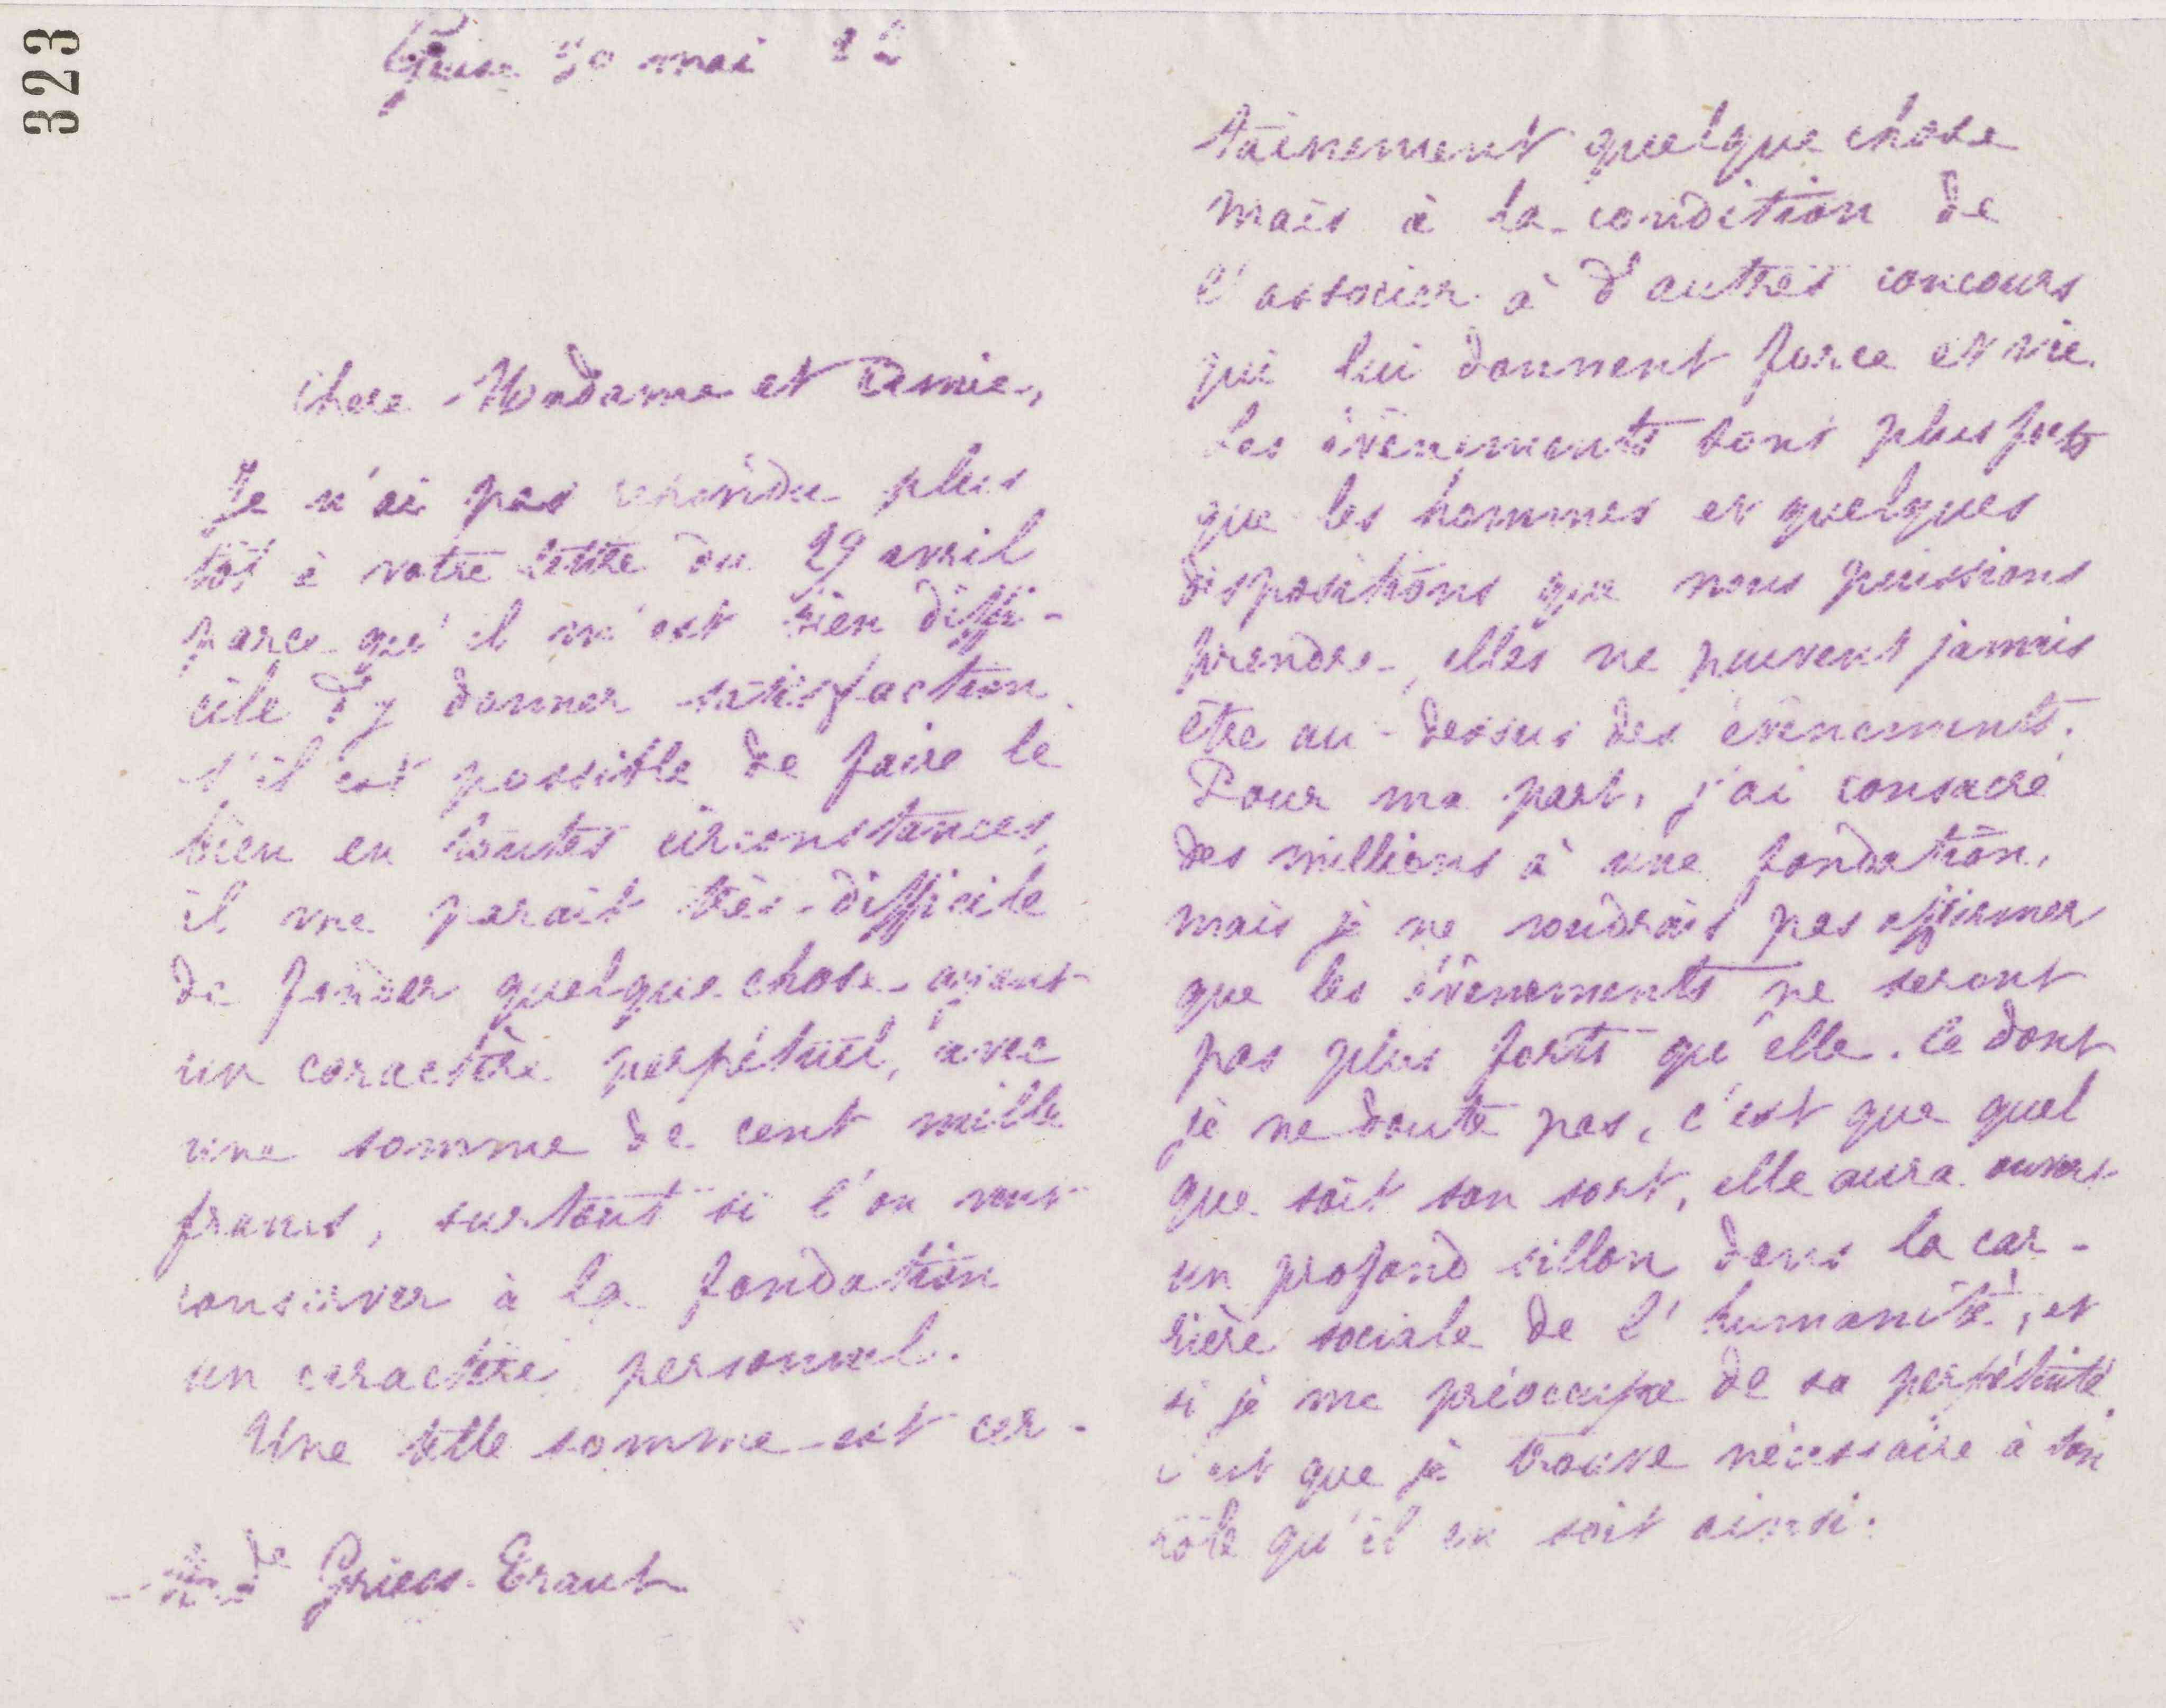 323
Guise mai
Chere Madame et Amie,
Je n'ai pas repondu plus
tôt à votre lettre du 29 avril
parce qu'il m'est bien diffi-
cile d'y donner satisfaction.
S'il est possible de faire le
bien en toutes circonstances,
il me parait très-difficile
de fonder quelque chose ayant
un caractère perpétuel, avec
une somme de cent mille
francs, surtout si l'on veut
conserver à la fondation
un caractère personnel.
Une telle somme est cer-
Mde Griess-Traut
tainement quelque chose
mais à la condition de
l'associer à d'autres concours
qui lui donnent force et vie.
Les évènements sont plus forts
que les hommes et quelques
dispositions que nous puissions
prendre, elles ne peuvent jamais
être au-dessus des évènements.
Pour ma part, j'ai consacré
des millions à une fondation,
mais je ne voudrais pas affirmer
que les évènements ne seront
pas plus forts qu'elle. Ce dont
je ne doute pas, c'est que quel
que soit son sort, elle aura ouvert
un profond sillon dans la car-
rière sociale de l'humanité, et
si je me préoccupe de sa perpétuité,
c'est que je trouve nécessaire à son
rôle qu'il en soit ainsi.